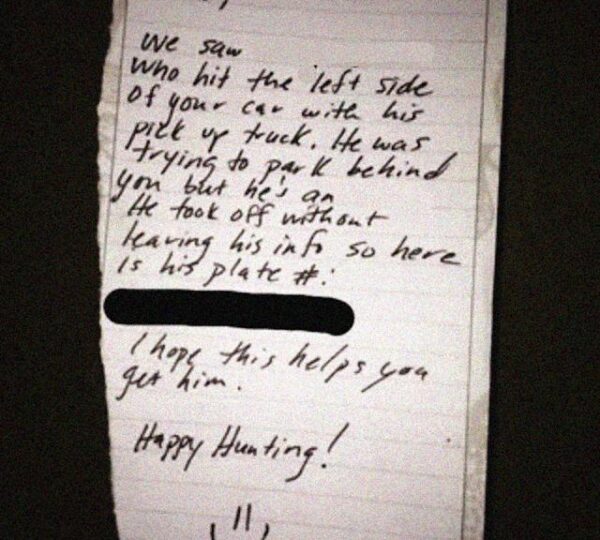 We saw
who hit the left side
of your car with his
pick up truck. He was
trying to park behind
you but he's an
He took off without
leaving his info so here
is his plate #:
I hope this helps you
get him.
Happy Hunting!